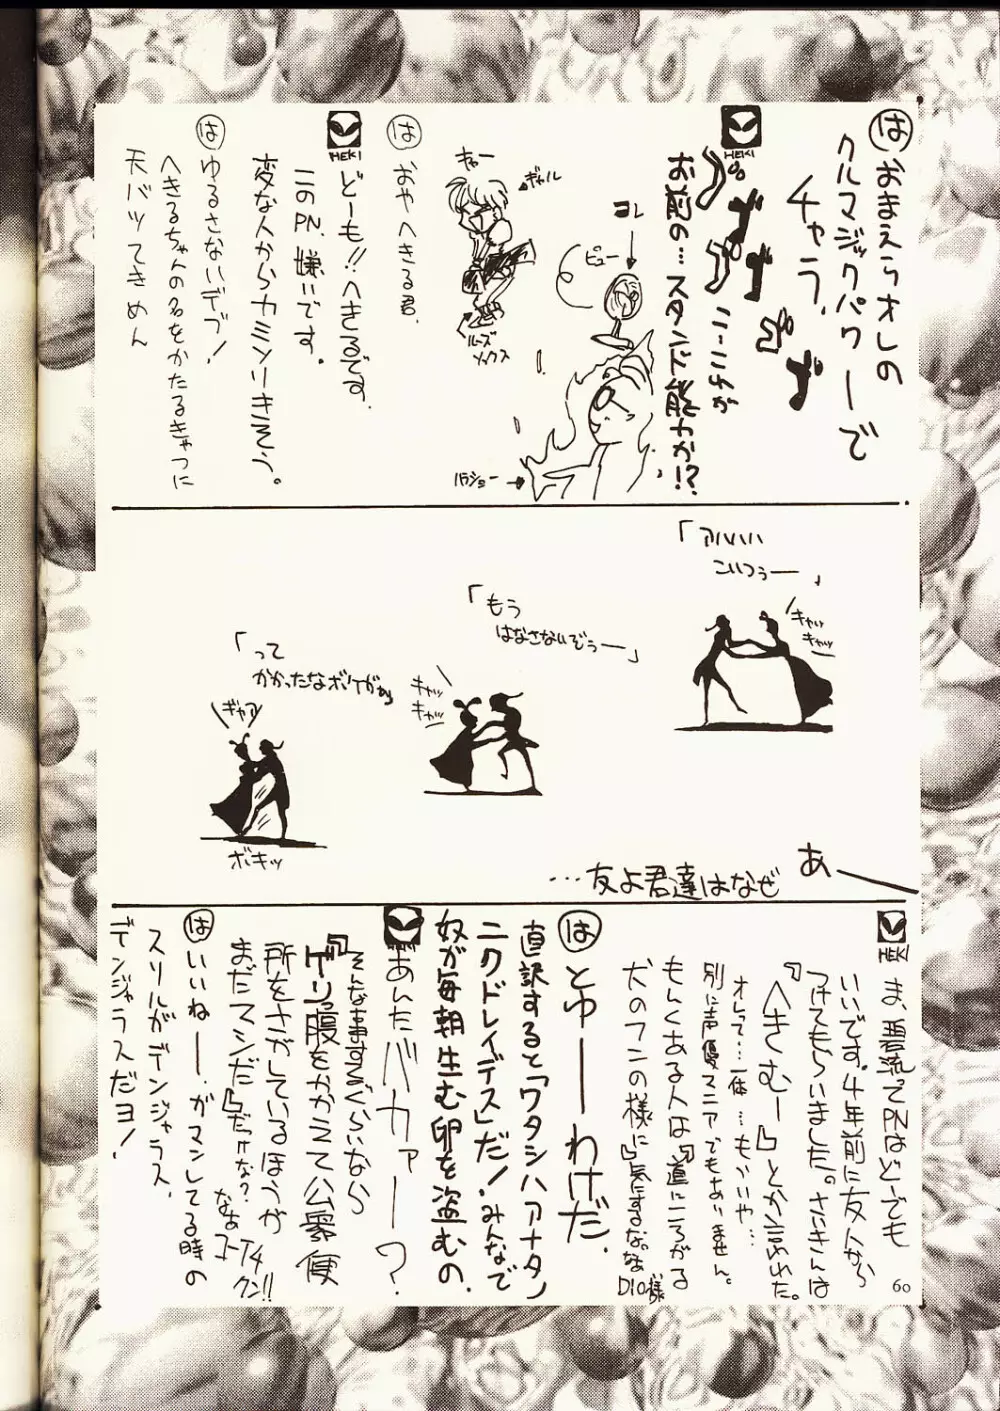 は おまえらオレの
クルマジックパワーで
チャラ、
HEKI
ゴゴゴ
こ…これが
お前の…スタンド能力か!?
コレ
ビュー
ハラショー→
キュー
ギャル
ルーズ
ソックス
は おやへきる君、
HEKI
どーも!!へきるです、
このPN、嫌いです。
変な人からカミソリきそう。
は ゆるさないデブ!
へきるちゃんの名をかたるきゃつに
天バツてきめん
「アハハハ
こいつぅー」
キャッ
キャッ
「もう
はなさないぞぅー」
キャッ
キャッ
「って
かかったなボケがぁ
ギャア
ボキッ
あー
…友よ君達はなぜ
HEKI
ま、君流ってPNはどーでも
いいです。4年前に友人から
つけてもらいました。さいきんは
『へきむー』とか言われた。
オレって…一体…もういいや…
別に声優マニアでもありません。
もんくある人は『道にころがる
犬のフンの様に』気にするな。なぁ
DIO様
は とゆーーわけだ、
直訳すると「ワタシハアナタノ
ニクドレイデス」だ!みんなで
奴が毎朝生む卵を盗むの、
あんたバカァー?
『そんな事するぐらいなら
ゲリっ腹をかかえて公衆便
所をさがしているほうが
まだマシだ』だっけな?
なぁ
コーイチ
クン!!
は いいねー、ガマンしてる時の
スリルがデンジャラス、
デンジャラスだヨ!
60